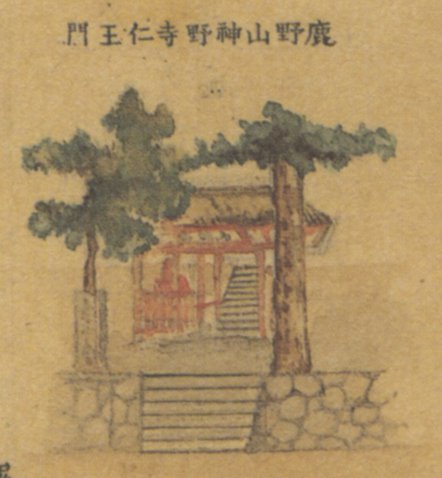 鹿野山神野寺仁王門